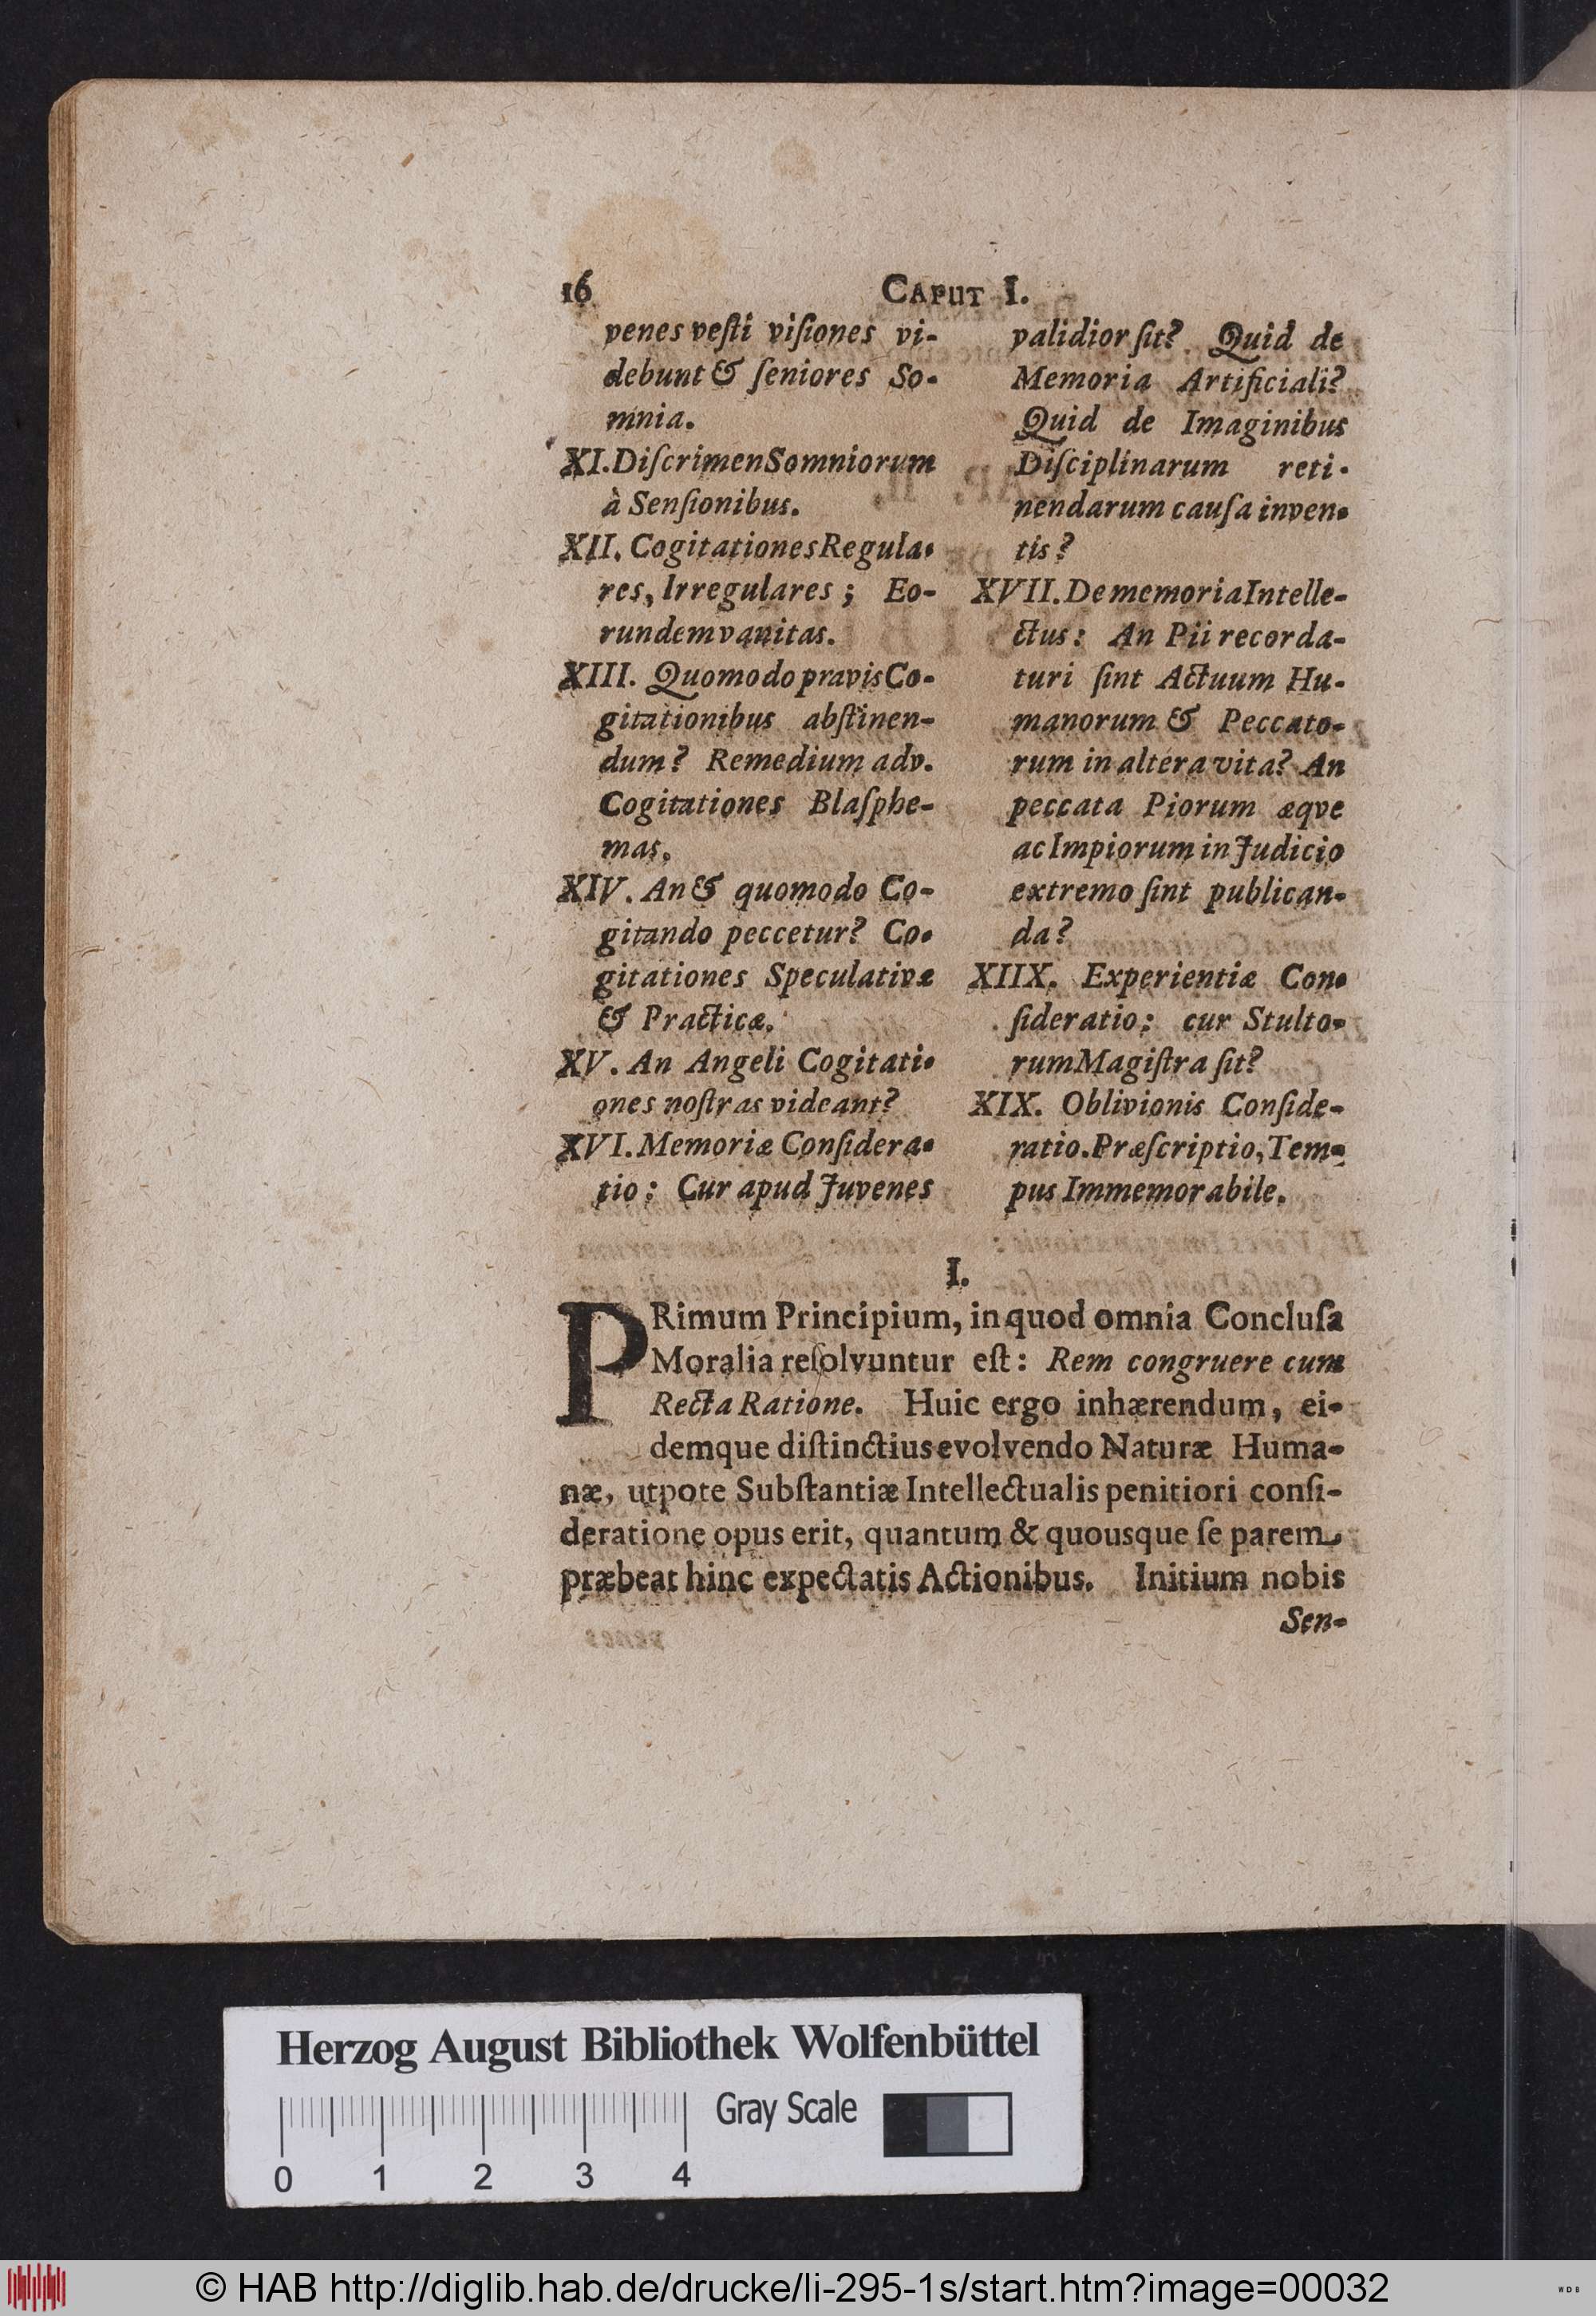 16 CAPUT I.
venes vestri visiones vi-
debunt & ſeniores So-
mnia.
XI. Diſcrimen Somniorum
à Senſionibus.
XII. Cogitationes Regula-
res, Irregulares; Eo-
rundem vanitas.
XIII. Quomodo pravis Co-
gitationibus abſtinen-
dum? Remedium adv.
Cogitationes Blaſphe-
mas.
XIV. An & quomodo Co-
gitando peccetur? Co-
gitationes Speculativæ
& Practicæ.
XV. An Angeli Cogitati-
ones noſtras videant?
XVI. Memoriæ Conſidera-
tio: Cur apud Juvenes
validior ſit? Quid de
Memoria Artificiali?
Quid de Imaginibus
Diſciplinarum reti-
nendarum cauſa inven-
tis?
XVII. De memoria Intelle-
ctus: An Pii recorda-
turi ſint Actuum Hu-
manorum & Peccato-
rum in altera vita? An
peccata Piorum æqve
ac Impiorum in Judicio
extremo ſint publican-
da?
XIIX. Experientiæ Con-
ſideratio: cur Stulto-
rum Magiſtra ſit?
XIX. Oblivionis Conſide-
ratio. Præſcriptio, Tem-
pus Immemorabile.
I.
PRimum Principium, in quod omnia Concluſa
Moralia reſolvuntur eſt: Rem congruere cum
Recta Ratione. Huic ergo inhærendum, ei-
demque diſtinctius evolvendo Naturæ Huma-
næ, utpote Subſtantiæ Intellectualis penitiori conſi-
deratione opus erit, quantum & quousque ſe parem
præbeat hinc expectatis Actionibus. Initium nobis
Sen-
Herzog August Bibliothek Wolfenbüttel
Gray Scale
0 1 2 3 4
© HAB http://diglib.hab.de/drucke/li-295-1s/start.htm?image=00032
WDB